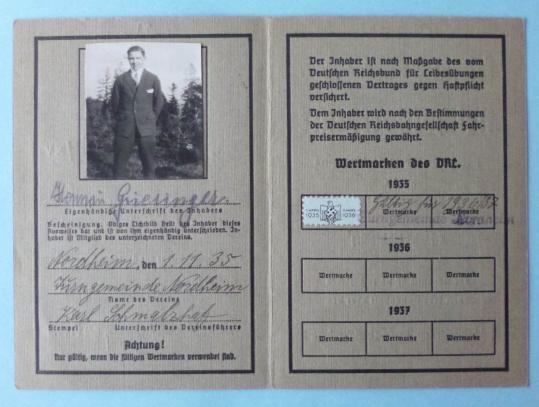 Griesinger
Eigenhändige Unterschrift des Inhabers
Bescheinigung. Obiges Lichtbild stellt den Inhaber dieses
Ausweises dar und ist von ihm eigenhändig unterschrieben. In-
haber ist Mitglied des unterzeichneten Vereins.
Nordheim, den 1. 11. 35
Turngemeinde Nordheim
Name des Vereins
Karl Schmalzhaf
Stempel Unterschrift des Vereinsführers
Achtung!
Nur gültig, wenn die fälligen Wertmarken verwendet sind.
Der Inhaber ist nach Maßgabe des vom
Deutschen Reichsbund für Leibesübungen
geschlossenen Vertrages gegen Haftpflicht
versichert.
Dem Inhaber wird nach den Bestimmungen
der Deutschen Reichsbahngesellschaft Fahr-
preisermäßigung gewährt.
Wertmarken des DRL.
1935
1935 1936 Gültig für 1936/37
Wertmarke Wertmarke
1936
Wertmarke Wertmarke Wertmarke
1937
Wertmarke Wertmarke Wertmarke